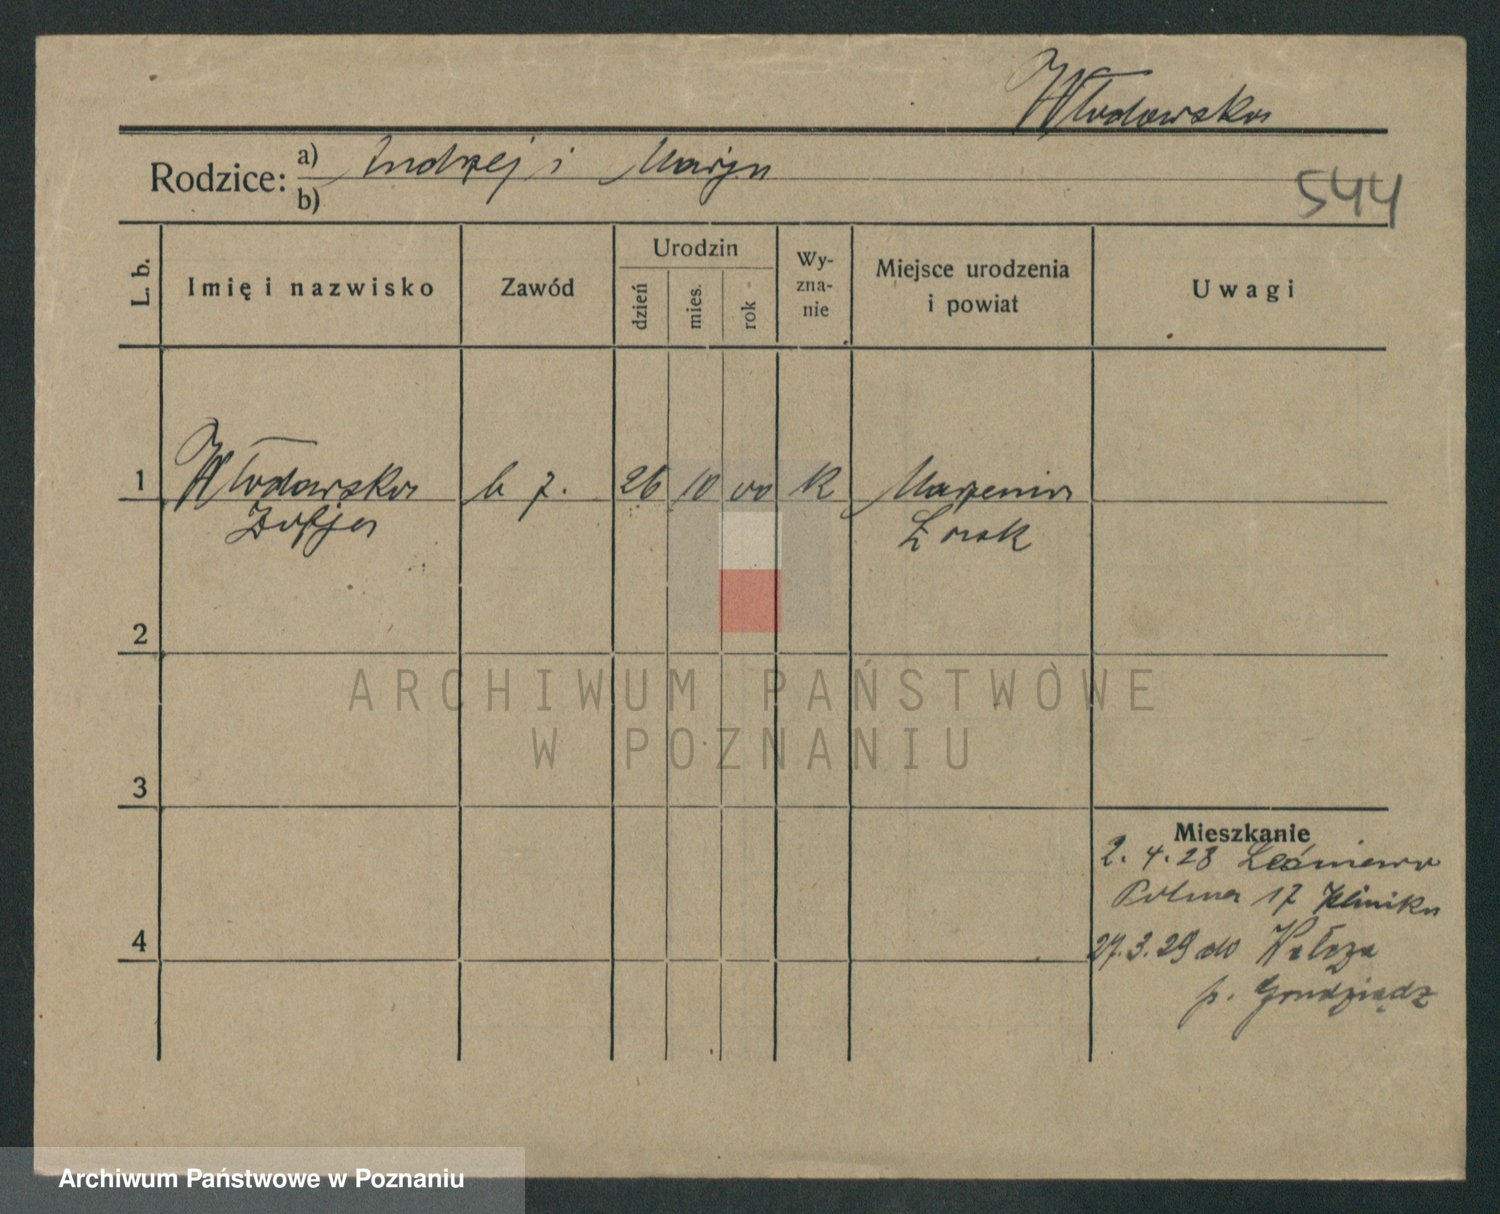 Włodowska
Rodzice: a) Andrzej i Marja
b)
544
L. b.
Imię i nazwisko
Zawód
Urodzin
dzień
mies.
rok
Wy-
zna-
nie
Miejsce urodzenia
i powiat
Uwagi
1
Włodowska
Zofja
b z.
26
10
00
K
Marzenin
Łask
2
ARCHIWUM PAŃSTWOWE
W POZNANIU
3
Mieszkanie
2.4.28
Polna 17 Klinika
4
27.3.29 do
p. Grudziądz
Archiwum Państwowe w Poznaniu